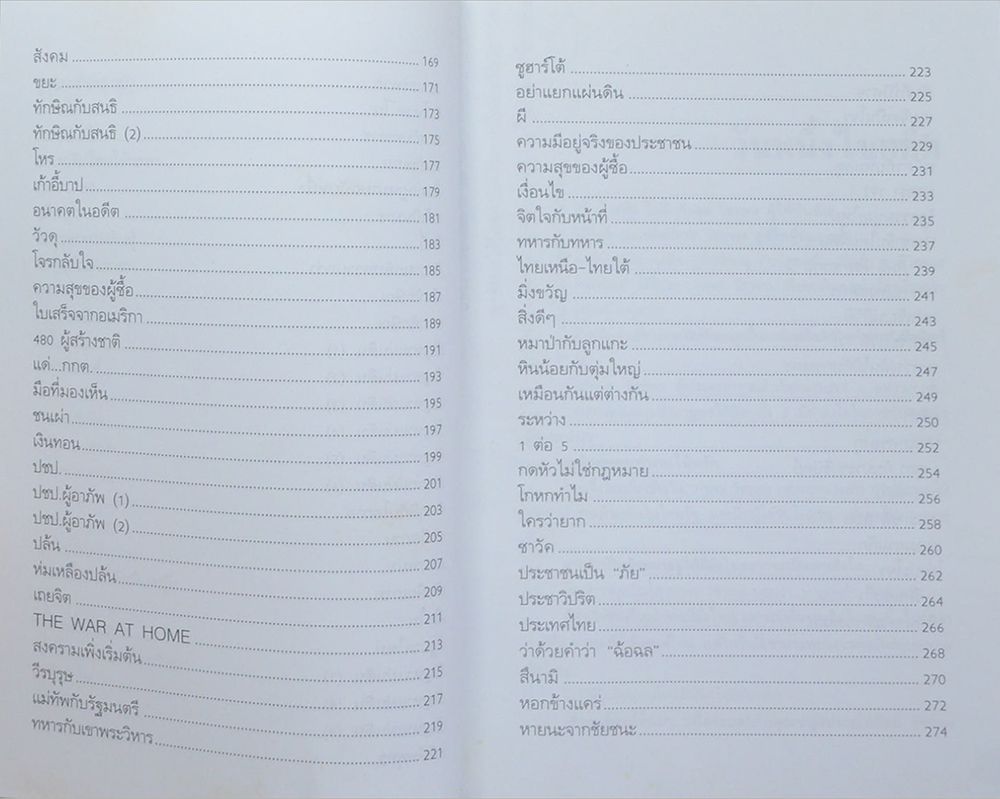 สังคม 169
ขยะ 171
ทักษิณกับสนธิ 173
ทักษิณกับสนธิ (2) 175
โหร 177
เก้าอี้บาป 179
อนาคตในอดีต 181
วัวดุ 183
โจรกลับใจ 185
ความสุขของผู้ซื้อ 187
ใบเสร็จจากอเมริกา 189
480 ผู้สร้างชาติ 191
แด่...กกต. 193
มือที่มองเห็น 195
ชนเผ่า 197
เงินทอน 199
ปชป. 201
ปชป.ผู้อาภัพ (1) 203
ปชป.ผู้อาภัพ (2) 205
ปล้น 207
ห่มเหลืองปล้น 209
เถยจิต 211
THE WAR AT HOME 213
สงครามเพิ่งเริ่มต้น 215
วีรบุรุษ 217
แม่ทัพกับรัฐมนตรี 219
ทหารกับเขาพระวิหาร 221
ซูฮาร์โต้ 223
อย่าแยกแผ่นดิน 225
ผี 227
ความมีอยู่จริงของประชาชน 229
ความสุขของผู้ซื้อ 231
เงื่อนไข 233
จิตใจกับหน้าที่ 235
ทหารกับทหาร 237
ไทยเหนือ-ไทยใต้ 239
มิ่งขวัญ 241
สิ่งดีๆ 243
หมาป่ากับลูกแกะ 245
หินน้อยกับตุ่มใหญ่ 247
เหมือนกันแต่ต่างกัน 249
ระหว่าง 250
1 ต่อ 5 252
กดหัวไม่ใช่กฎหมาย 254
โกหกทำไม 256
ใครว่ายาก 258
ซาวัค 260
ประชาชนเป็น "ภัย" 262
ประชาวิปริต 264
ประเทศไทย 266
ว่าด้วยคำว่า "ฉ้อฉล" 268
สึนามิ 270
หอกข้างแคร่ 272
หายนะจากชัยชนะ 274